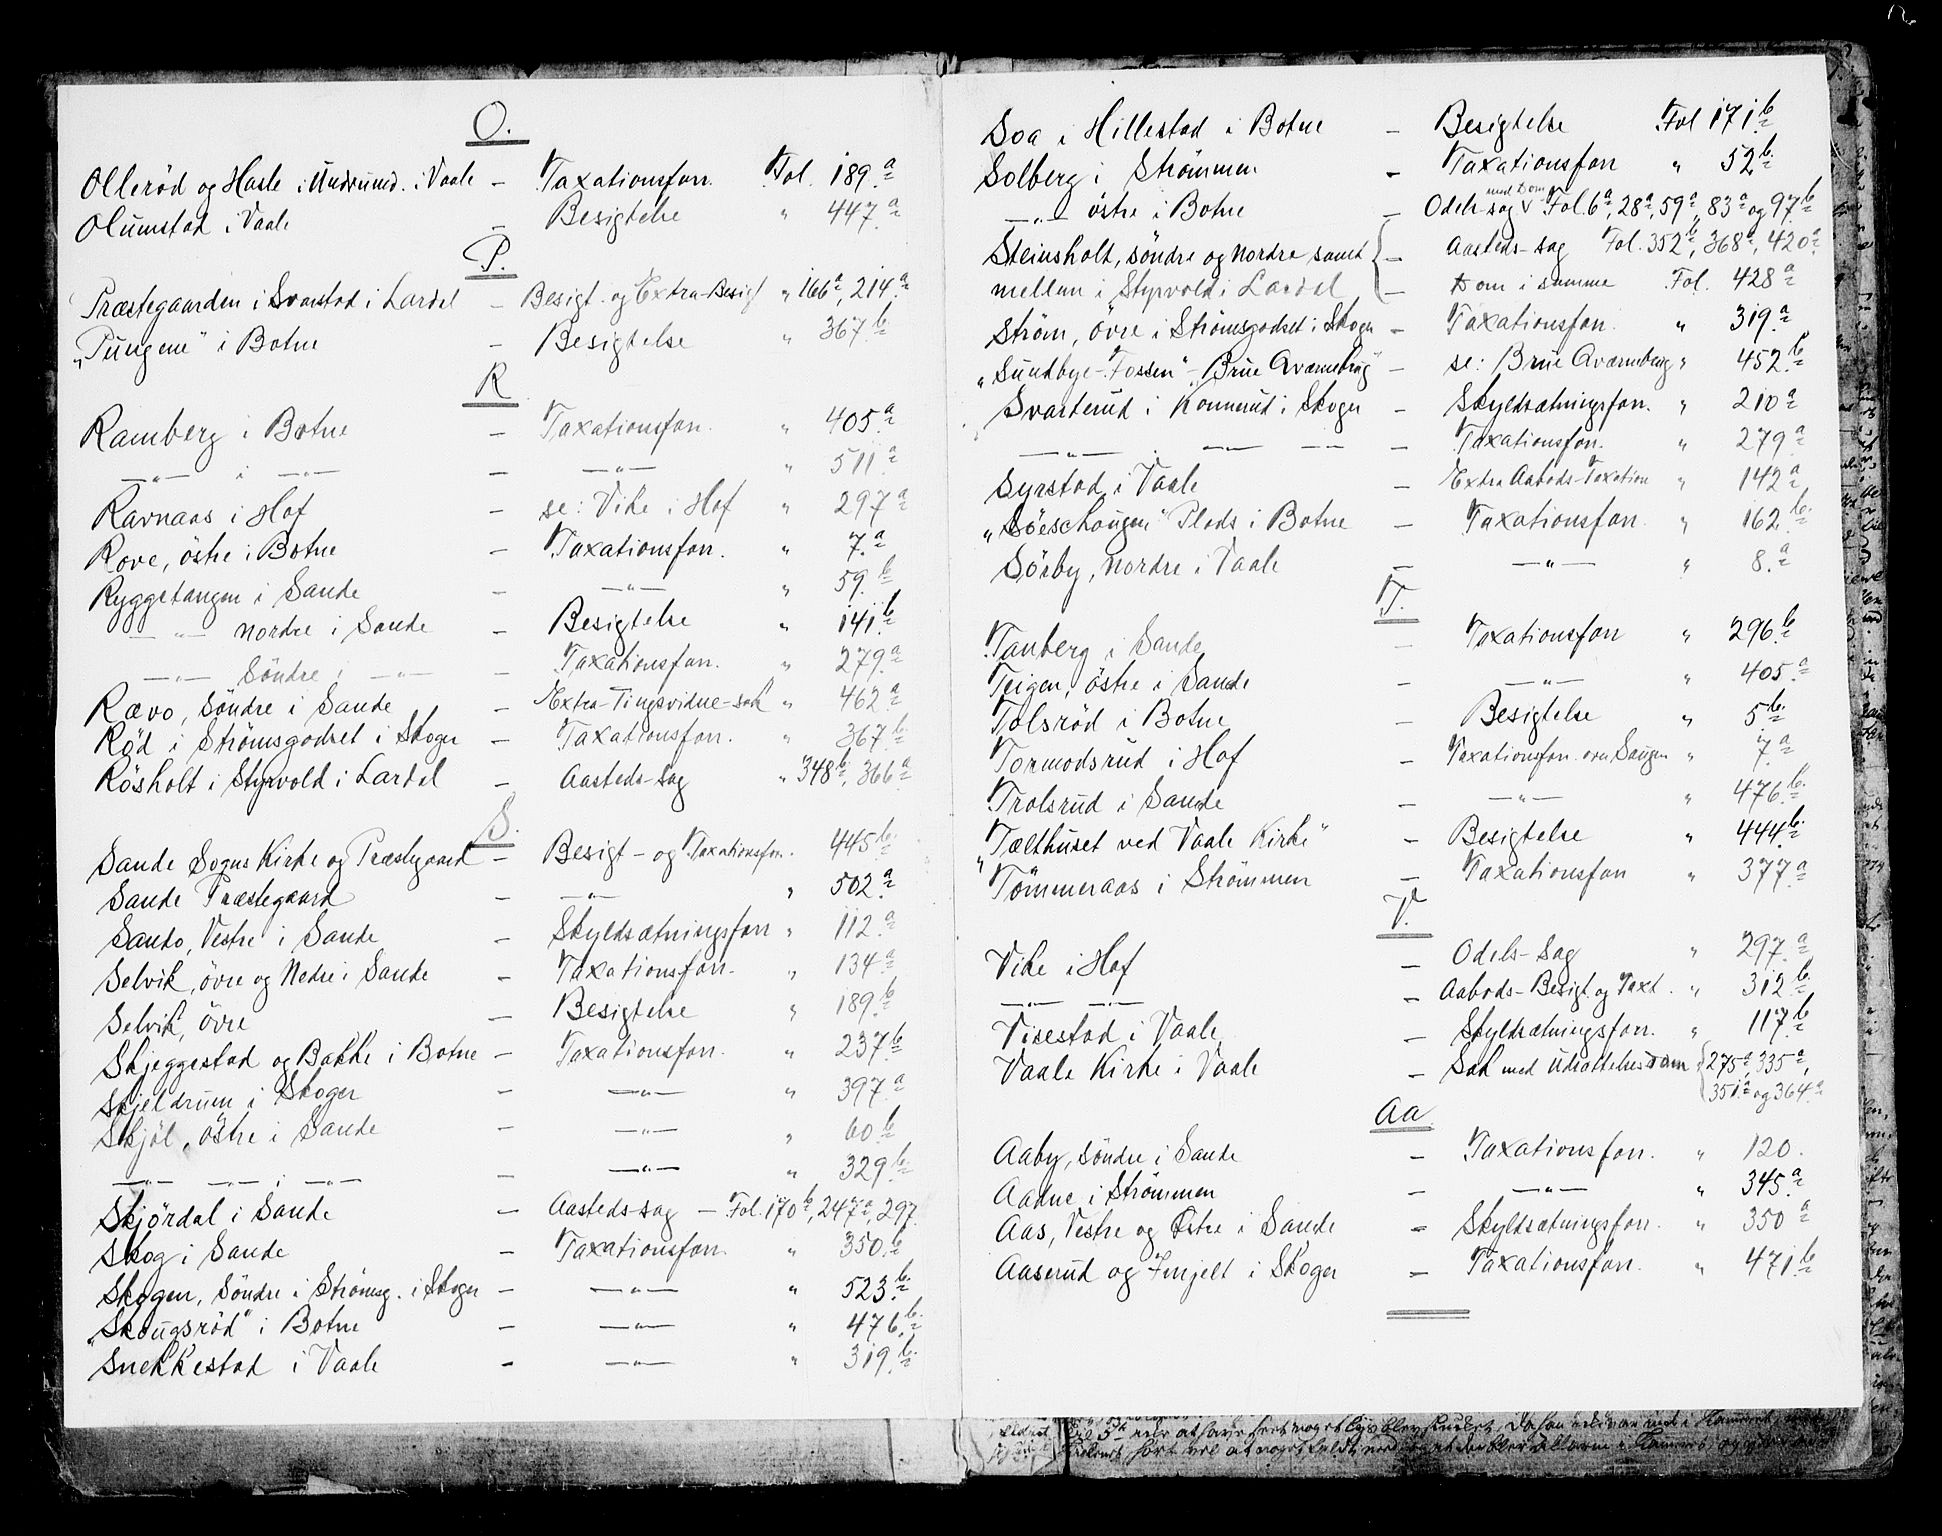 O.
Ollerød og Hasle i Undrumd. i Vaale – Taxationsforr. Fol. 189.a
Olumstad i Vaale – Besigtelse " 447.a
P.
Præstegaarden i Svarstad i Lardal – Besigt. og Extra-Besigt " 166a, 214.a
"Pungene" i Botne – Besigtelse " 367.b
R
Ramberg i Botne – Taxationsforr. " 405.a
—"— i —"— – —"— " 511a
Ravnaas i Hof – se: Vike i Hof " 297a
Rove, östre i Botne – Taxationsforr. " 7.a
Ryggetangen i Sande – —"— " 59.b
—"— nordre i Sande – Besigtelse " 141.b
—"— Söndre i —"— – Taxationsforr. " 279.a
Rævo, Söndre i Sande – Extra-Tingsvidne-sak " 462a
Röd i Strömsgodset i Skoger – Taxationsforr. " 367.b
Rösholt i Styrvold i Lardal – Aasteds-sag " 348b, 366a
S.
Sande Sogns Kirke og Præstegaard – Besigt – og Taxationsforr. 445b.
Sande Præstegaard – —"— " 502.a
Sando, Vestre i Sande – Skyldsætningsforr " 112.a
Selvik, övre og Nedre i Sande – Taxationsforr. " 134a
Selvik, övre – Besigtelse " 189.b
Skjeggestad og Bakke i Botne – Taxationsforr. " 237b
Skjeldrum i Skoger – —"— " 397.a
Skjöl, östre i Sande – —"— " 60.b
—"— —"— i —"— – —"— " 329b.
Skjördal i Sande – Aasteds-sag – Fol. 170b, 247a, 297.
Skog i Sande – Taxationsforr. " 350.b
Skogen, Söndre i Strömsg. i Skoger – —"— " 523.b
"Skougsröd" i Botne – —"— " 476.b
Snekkestad i Vaale – —"— " 319.b
Soa i Hillestad i Botne – Besigtelse Fol 171b
Solberg i Strömmen – Taxationsforr " 52b
—"— östre i Botne – Odels-sag med Dom Fol. 6a, 28a, 59a, 83a og 97.b
Steinsholt, söndre og nordre samt { – Aasteds-sag Fol. 352b, 368a, 420a
mellem i Styrvold i Lardal – Dom i samme Fol. 428a
Ström, övre i Strömsgodset i Skoger – Taxationsforr. " 319.a
"Sundbye-Fossen" – Brue Qværnebrug – se: Brue Qværnebrug " 452.b
Svarterud i Konnerud i Skoger – Skyldsætningsforr. " 210a
—"— — — — – Taxationsforr. " 279.a
Syrstad i Vaale – Extra Aabods-Taxation " 142a
"Söeschougen" Plads i Botne – Taxationsforr. " 162b.
Sörby, nordre i Vaale – —"— " 8.a
T.
Tanberg i Sande – Taxationsforr " 296.b
Teigen, östre i Sande – —"— " 405.a
Tolsröd i Botne – Besigtelse " 5b.
Tormodsrud i Hof – Taxationsforr. ovr Saugen " 7.a
Trolsrud i Sande – —"— " 476.b
"Tælthuset ved Vaale Kirke" – Besigtelse " 444b.
Tömmeraas i Strömmen – Taxationsforr " 377.a
V.
Vike i Hof – Odels-Sag " 297.a
—"— —"— – Aabods-Besigt. og Taxt. " 312b
Visestad i Vaale – Skyldsætningsforr. " 117.b
Vaale Kirke i Vaale – Sak med Udsættelsesdom { 275a, 335a,
351.a og 364.a
Aa
Aaby, söndre i Sande – Taxationsforr. " 120.
Aadne i Strömmen – —"— " 345.a
Aas, Vestre og Östre i Sande – Skyldsætningsforr. " 350a
Aaserud og Imjelt i Skoger – Taxationsforr. " 471.b